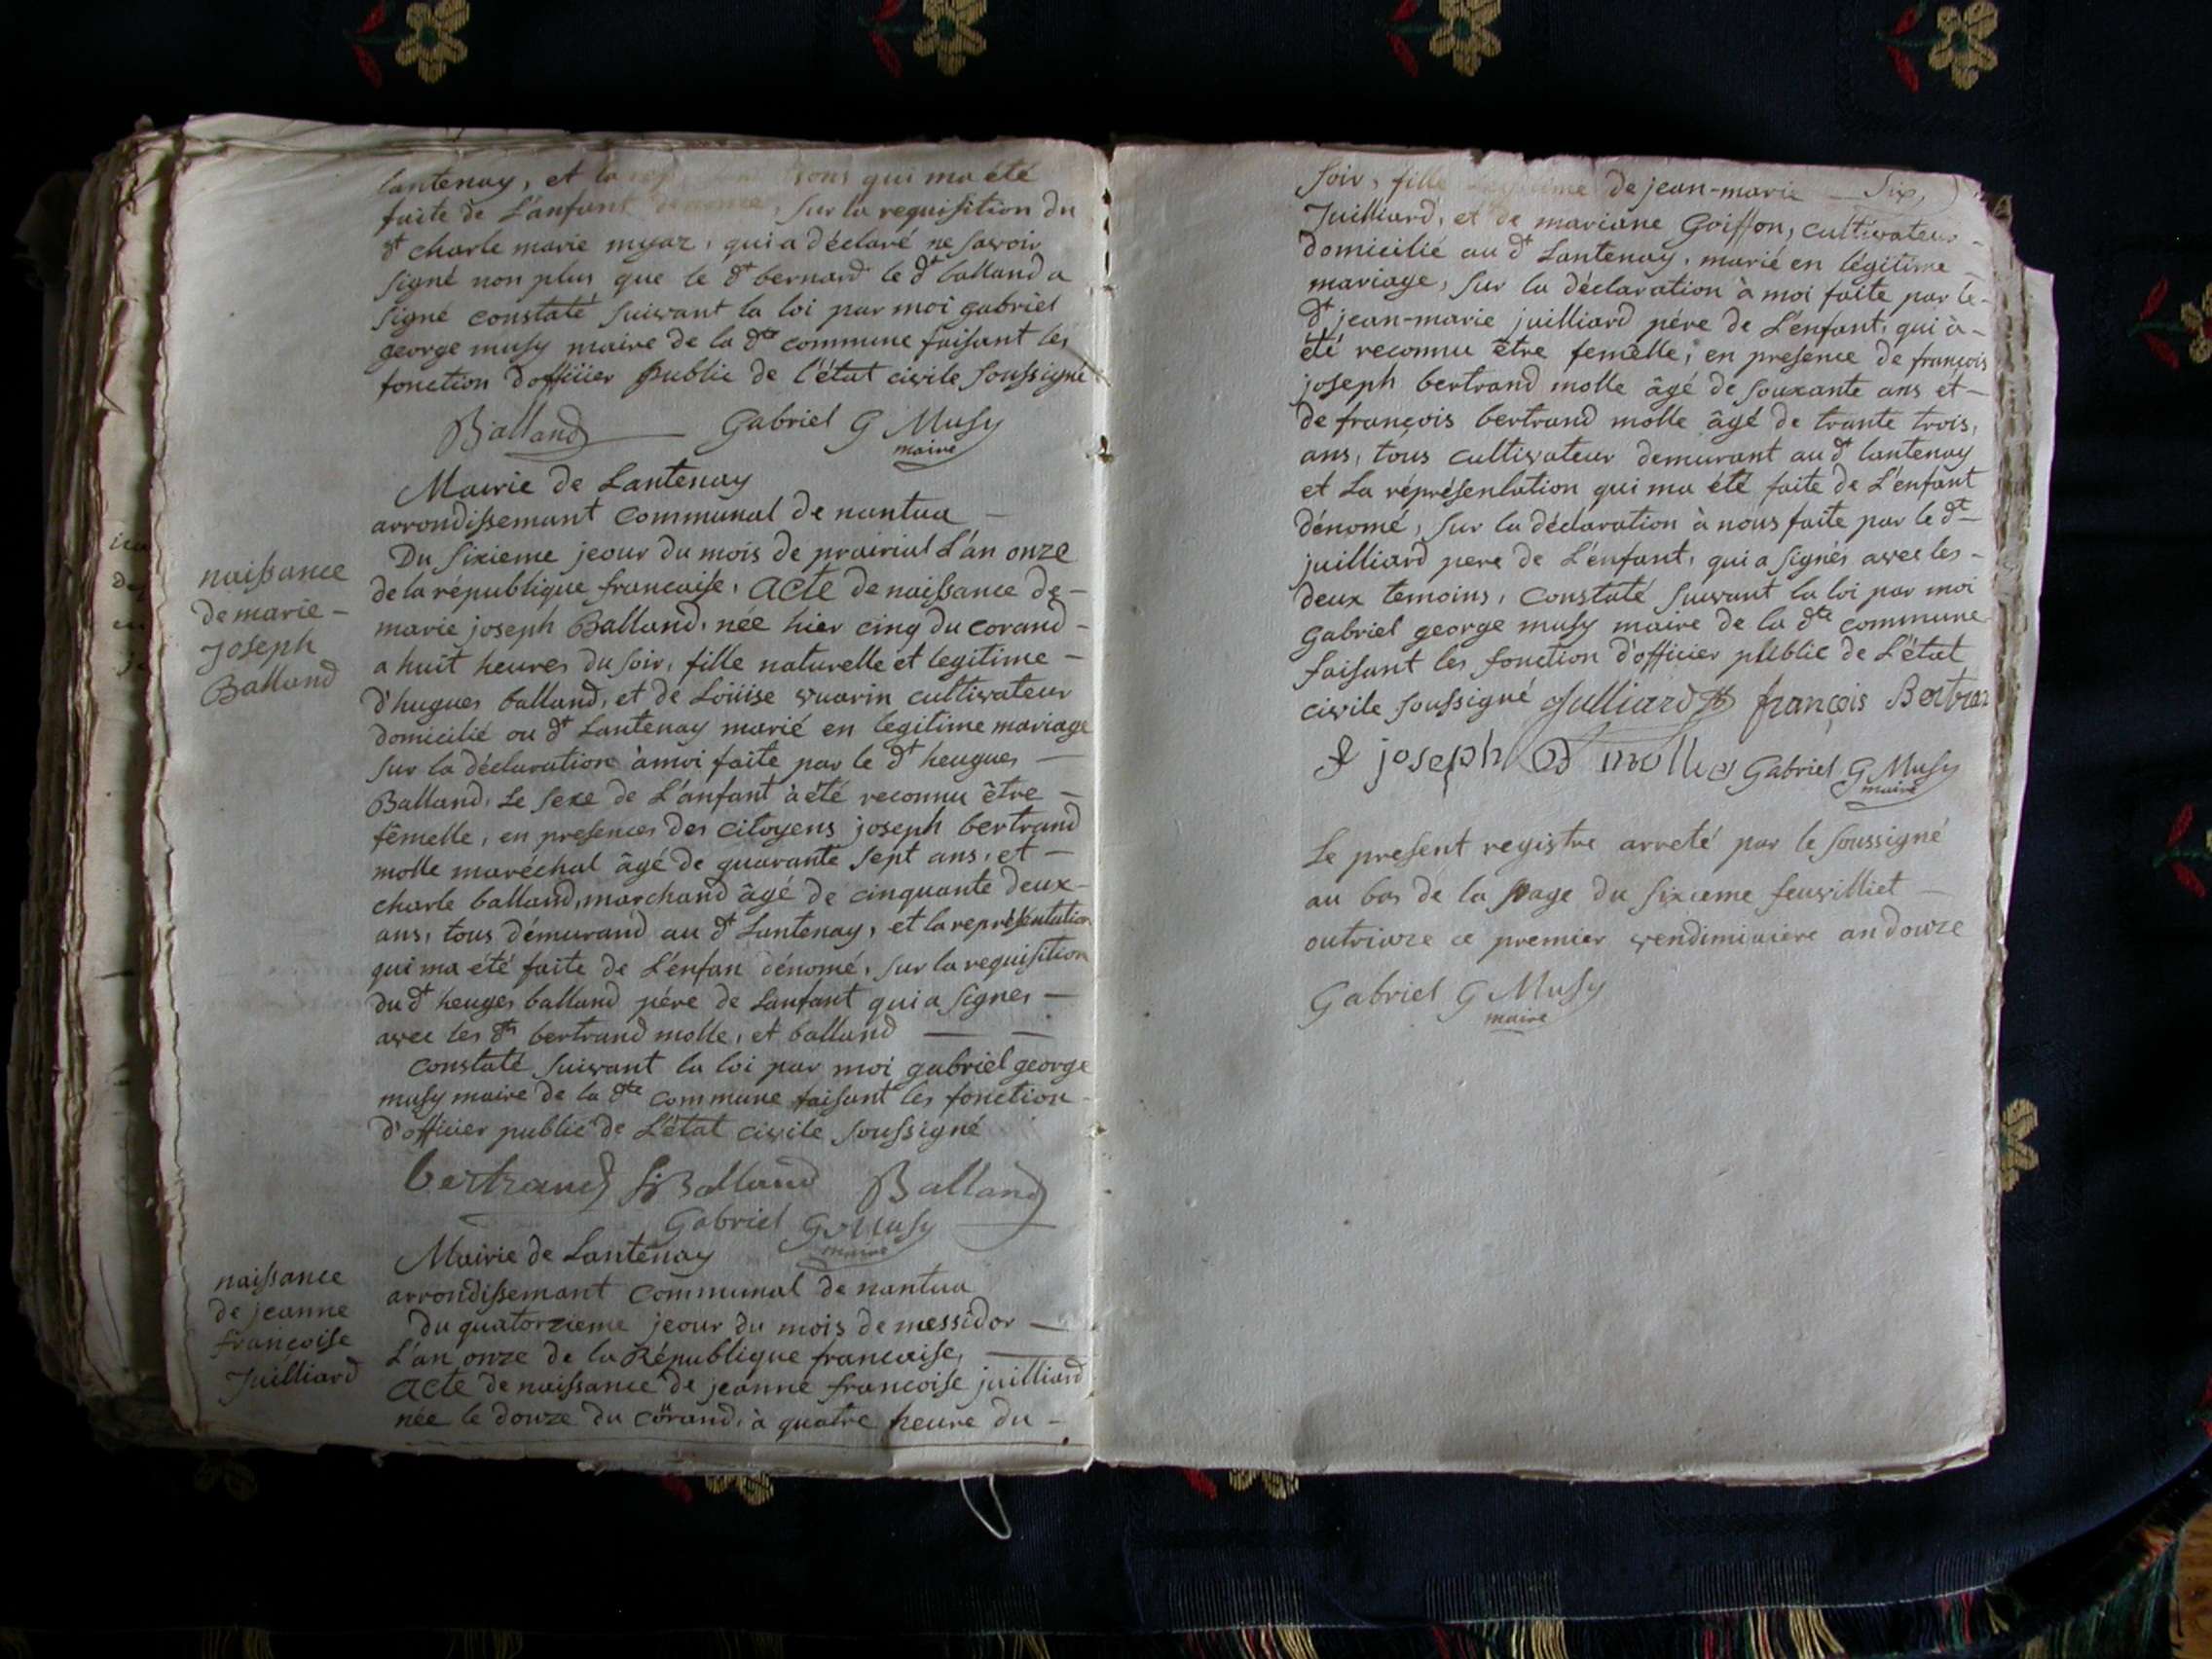 lantenay, et la qui ma été
faite de L'anfant dénomé, sur la requisition du
dt charle marie myaz, qui a déclaré ne savoir
signé non plus que le dt bernard le dt balland a
signé constaté suivant la loi par moi gabriel
george musy maire de la dte commune faisant les
fonction d'officier public de l'état civile soussigné
Balland Gabriel G Musy
maire
Mairie de Lantenay
arrondissemant communal de nantua
naissance
de marie -
joseph
Balland
Du sixieme jeour du mois de prairial L'an onze
de la république francaise, acte de naissance de -
marie joseph Balland, née hier cinq du corand -
a huit heures du soir, fille naturelle et legitime -
d'hugues balland, et de Loüise vuarin cultivateur
domicilié au dt Lantenay marié en légitime mariage
sur la déclaration à moi faite par le dt heugues -
Balland, Le sexe de L'anfant à été reconnu être -
fêmelle, en presences des citoyens joseph bertrand
molle maréchal âgé de quarante sept ans, et -
charle balland, marchand âgé de cinquante deux -
ans, tous démurand au dt Lantenay, et la représentation
qui ma été faite de L'énfan dénomé, sur la requisition
du dt heuges balland pére de Lanfant qui a signés -
avec les dts bertrand molle, et balland -
constaté suivant la loi par moi gabriel george
musy maire de la dte commune faisant les fonction
d'officier public de L'état civile soussigné
bertrand Balland Balland
Gabriel G Musy
maire
Mairie de Lantenay
arrondissemant communal de nantua
naissance
de jeanne
françoise
Juilliard
du quatorzieme jeour du mois de messidor -
L'an onze de la République francaise,
acte de naissance de jeanne francoise juilliard
née le douze du corand, à quatre heure du -
soir, fille de jean-marie - Six,
Juilliard, et de mariane Goiffon, cultivateur -
domicilié au dt Lantenay, marié en légitime -
mariage, sur la déclaration à moi faite par le -
dt jean-marie juilliard pére de L'enfant, qui à -
été reconnu être femêlle, en presence de françois
joseph bertrand molle âgé de souxante ans et -
de françois bertrand molle âgé de trante trois,
ans, tous cultivateur demurant au dt lantenay
et La réprésentation qui ma été faite de L'énfant
dénomé, sur la déclaration à nous faite par le dt -
juilliard pere de L'énfant, qui a signés avec les -
deux temoins, constaté suivant la loi par moi
Gabriel george musy maire de la dte commune
faisant les fonction d'officier public de L'état
civile soussigné Julliard françois Bertran
f joseph B molle Gabriel G Musy
maire
Le present registre arreté par le soussigné
au bas de la page du sixieme feuvilliet -
outriaze ce premier vendimiaire an douze
Gabriel G Musy
maire